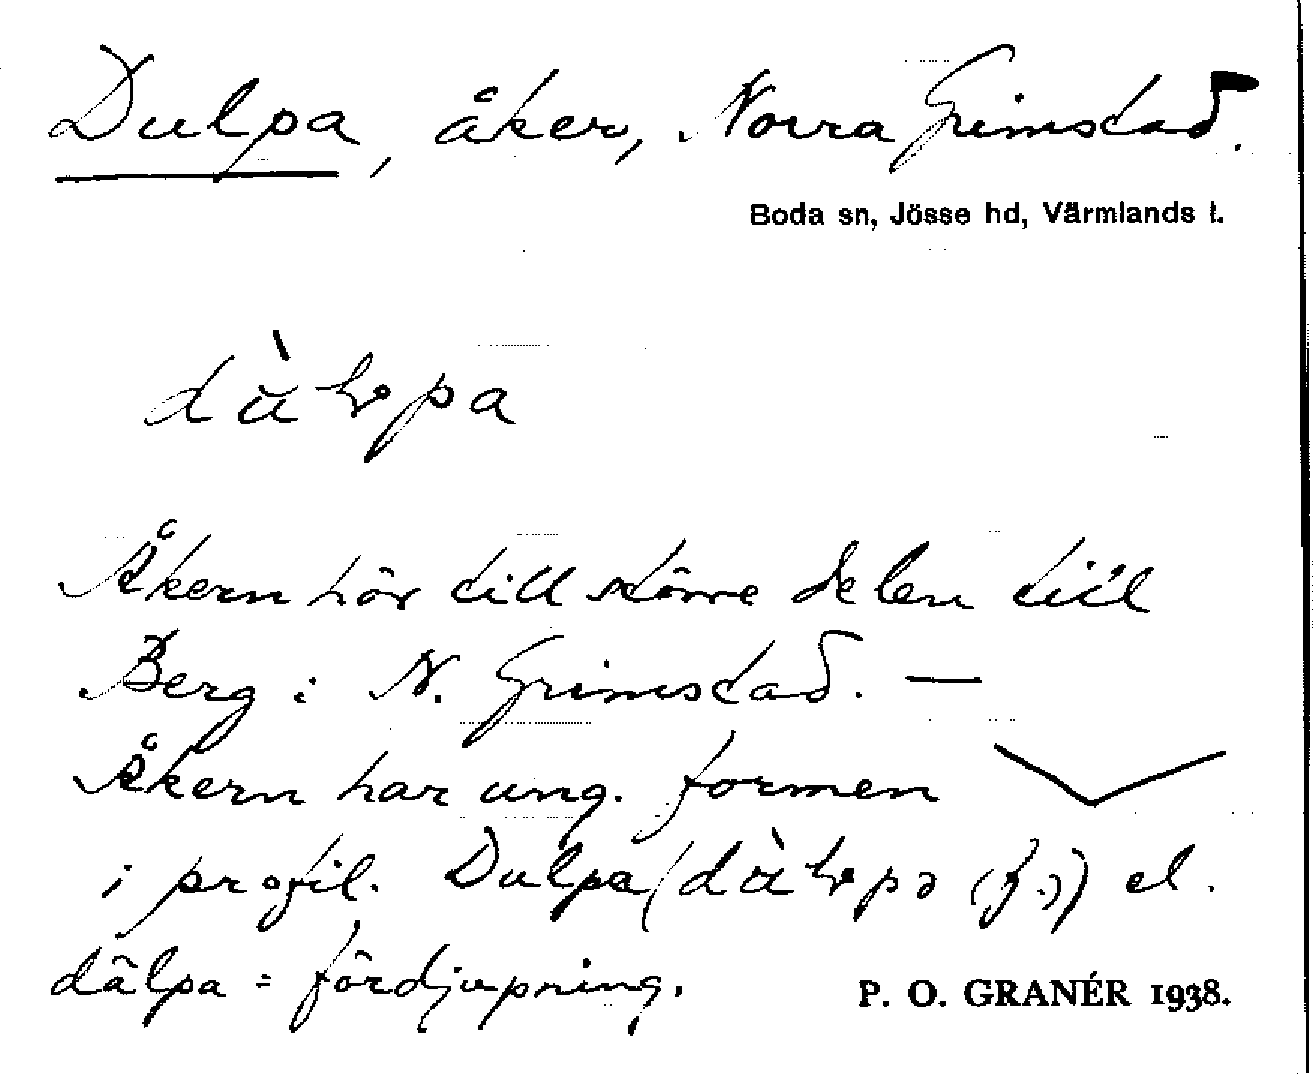 Dulpa, åker, Norra Grimstad.
Boda sn, Jösse hd, Värmlands l.
Åkern hör till större delen till
Berg i N. Grimstad. —
Åkern har ung. formen
i profil. Dulpa ( (f.)) el.
dälpa = fördjupning.
P. O. GRANÉR 1938.